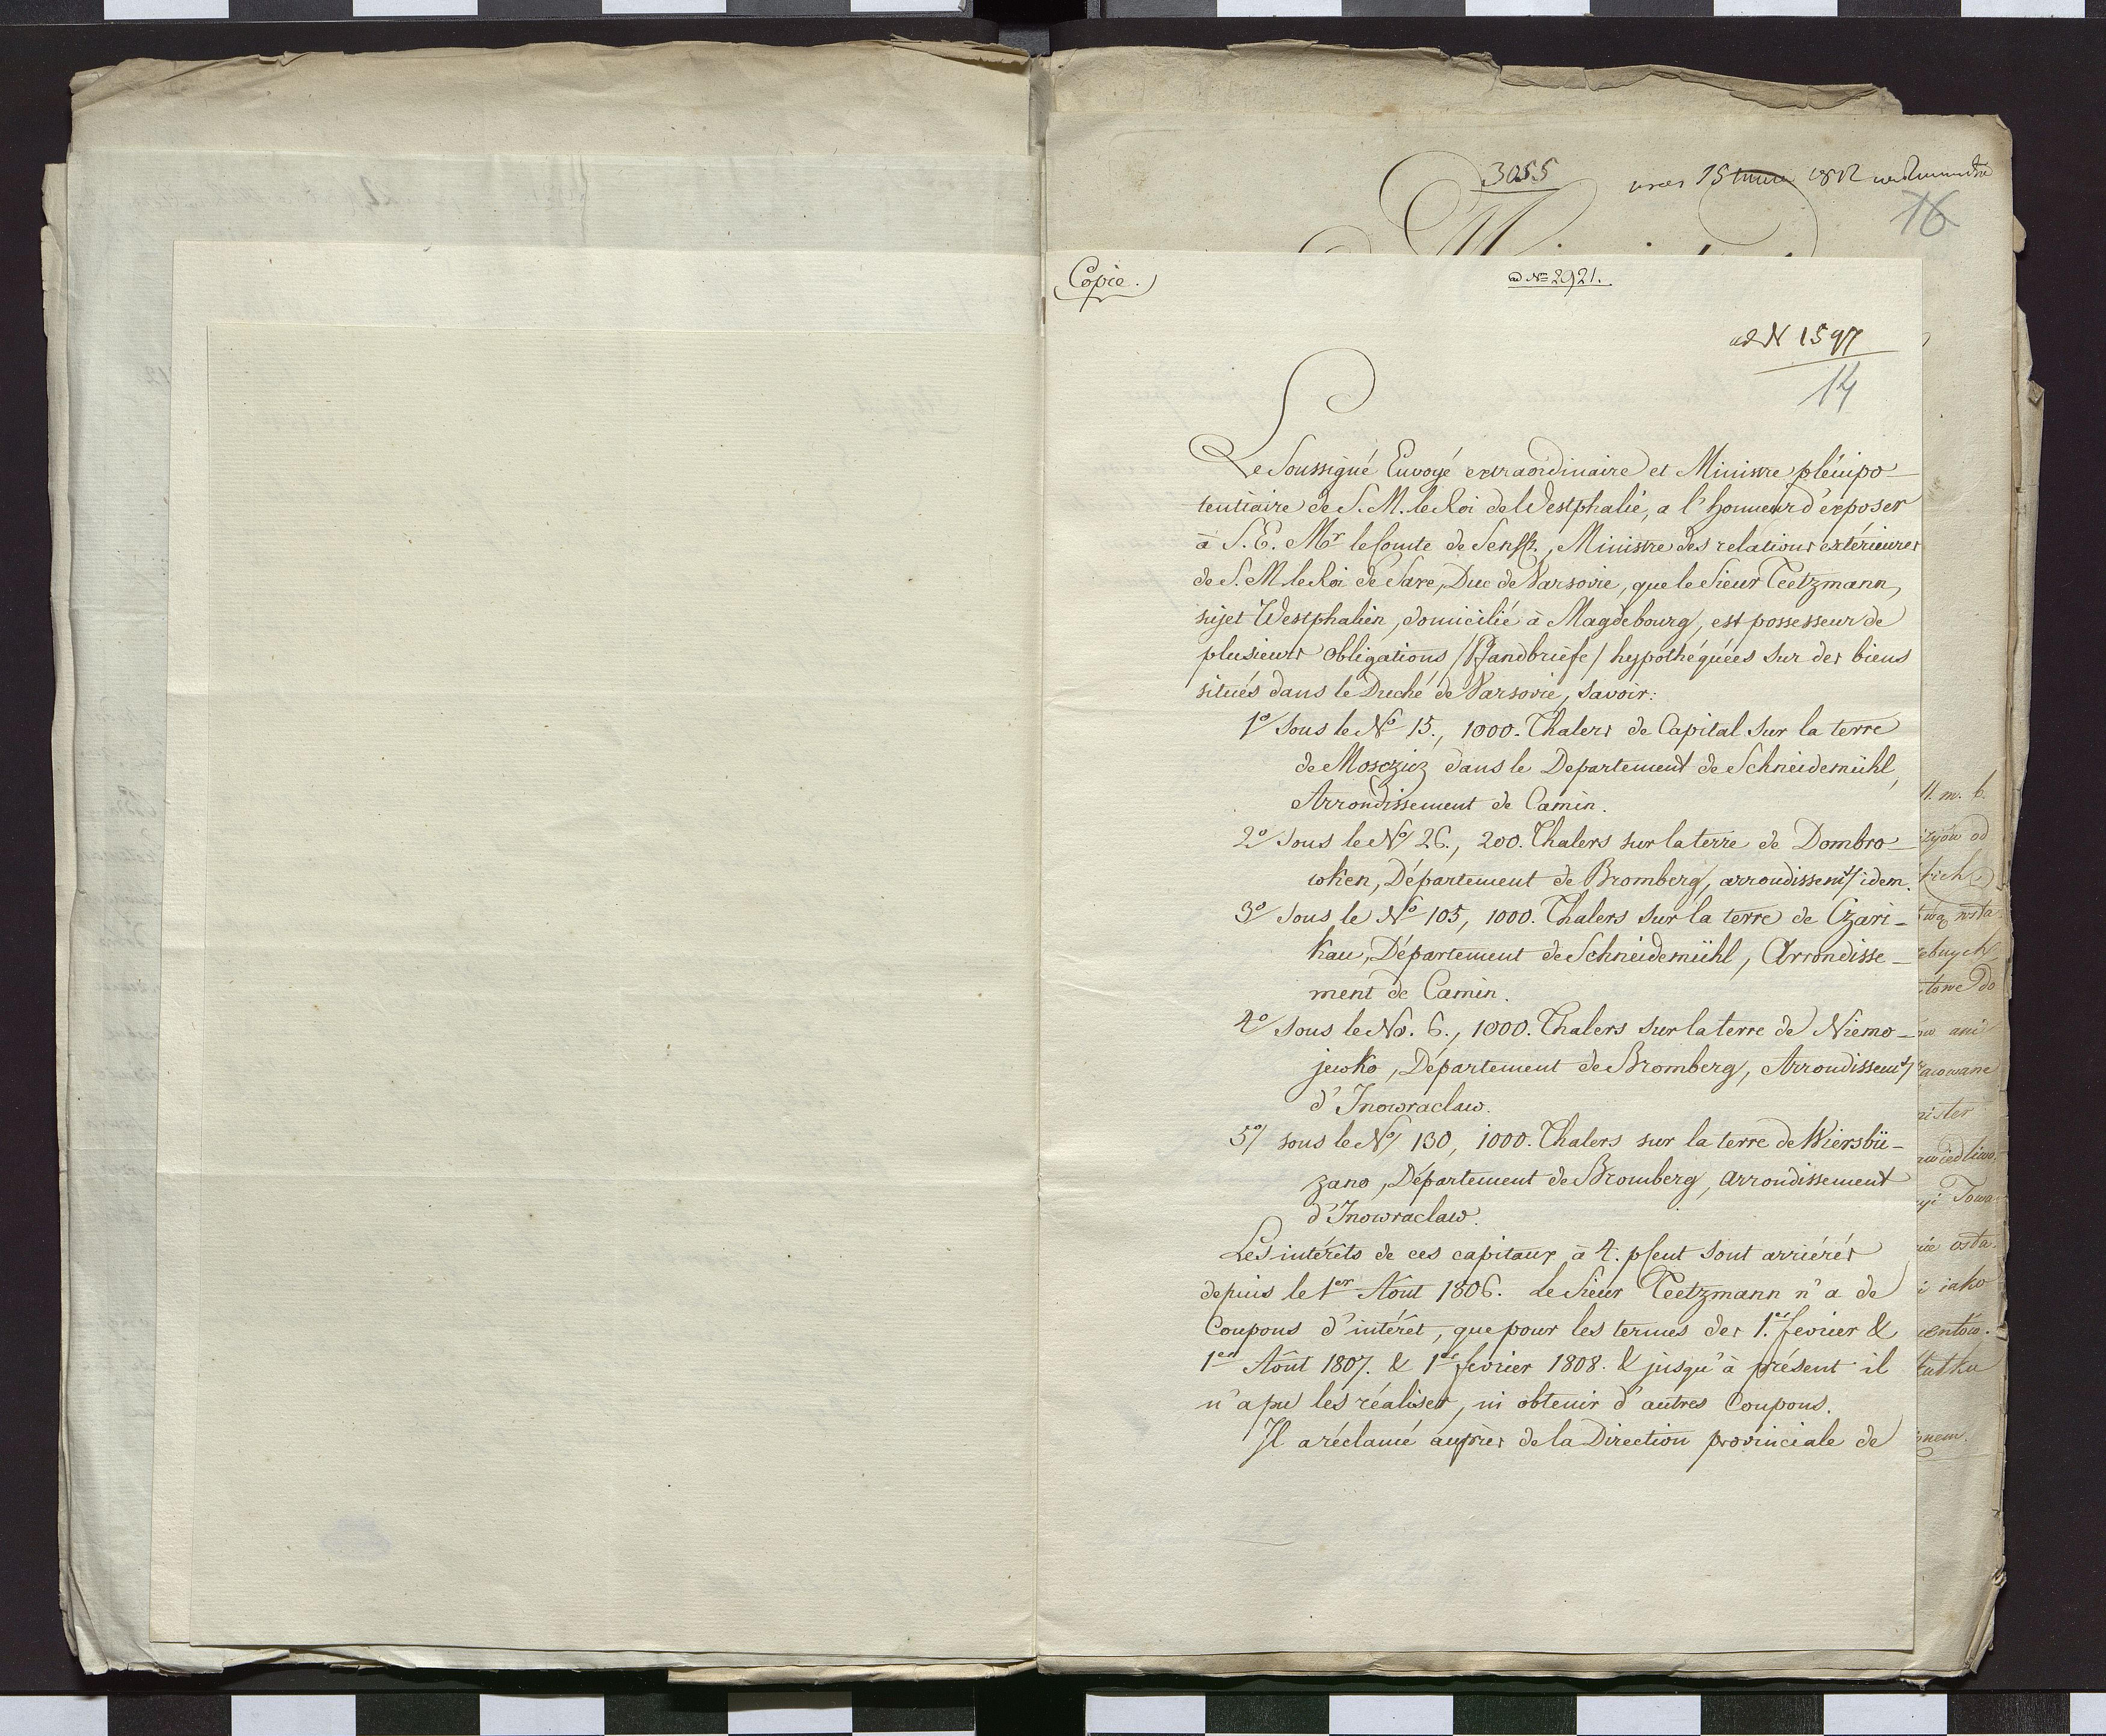 3055
1812
16
Copie.
ad No 2921.
ad N 1597
14
Le Soussigné Envoyé extraordinaire et Ministre plénipo-
tentiaire de S. M. le Roi de Westphalie, a l'honneur d'exposer
à S. E. Mr le Comte de Senfft, Ministre des relations extérieures
de S. M. le Roi de Saxe, Duc de Varsovie, que le Sieur Teetzmann,
sujet Westphalien, domicilié à Magdebourg, est possesseur de
plusieurs obligations /Pfandbriefe/ hypothéquées sur des biens
situés dans le Duché de Varsovie, Savoir:
1o/ Sous le No 15., 1000. Thalers de Capital sur la terre
de Mosczicz dans le Departement de Schneidemühl,
Arrondissement de Camin.
2o/ Sous le No/ 26., 200. Thalers sur la terre de Dombro-
wken, Département de Bromberg, arrondissemt/ idem.
3o/ Sous le No 105, 1000. Thalers sur la terre de Czari-
kau, Département de Schneidemühl, Arrondisse-
ment de Camin.
4o/ Sous le No. 6., 1000. Thalers sur la terre de Niemo-
jewko, Département de Bromberg, Arrondissemt/
d'Inowraclaw.
5o/ sous le No/ 130, 1000. Thalers sur la terre de Wiersbü-
zano, Département de Bromberg, arrondissement
d'Inowraclaw.
Les intérêts de ces capitaux à 4. pCent sont arriérés
depuis le 1er Aôut 1806. Le Sieur Teetzmann n'a de
Coupons d'intérêt, que pour les termes des 1.er fevrier &
1er Aôut 1807. & 1er fevrier 1808. & jusqu'à présent il
n'a pu les réaliser, ni obtenir d'autres Coupons.
Il a réclamé auprès de la Direction provinciale de